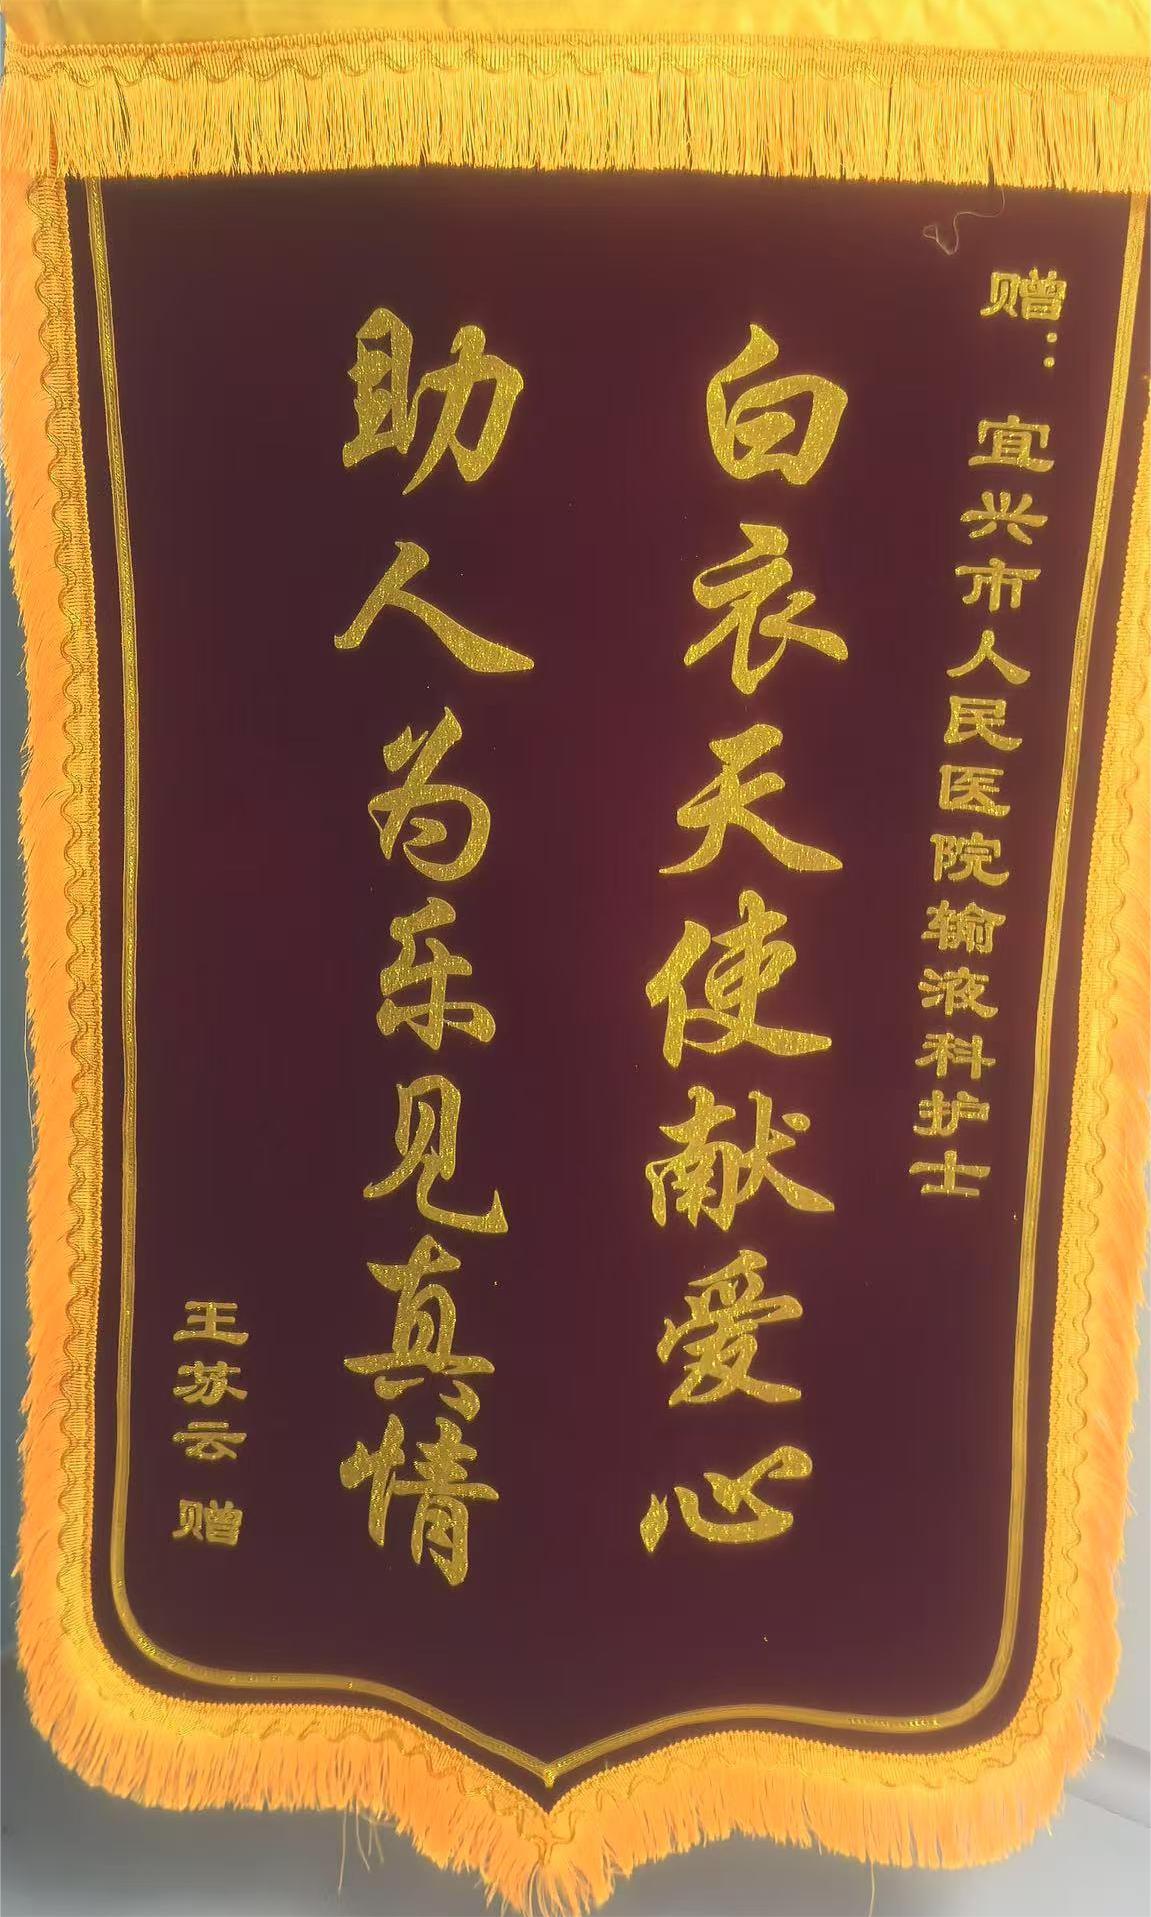 赠：宜兴市人民医院输液科护士
白衣天使献爱心
助人为乐见真情
王苏云 赠